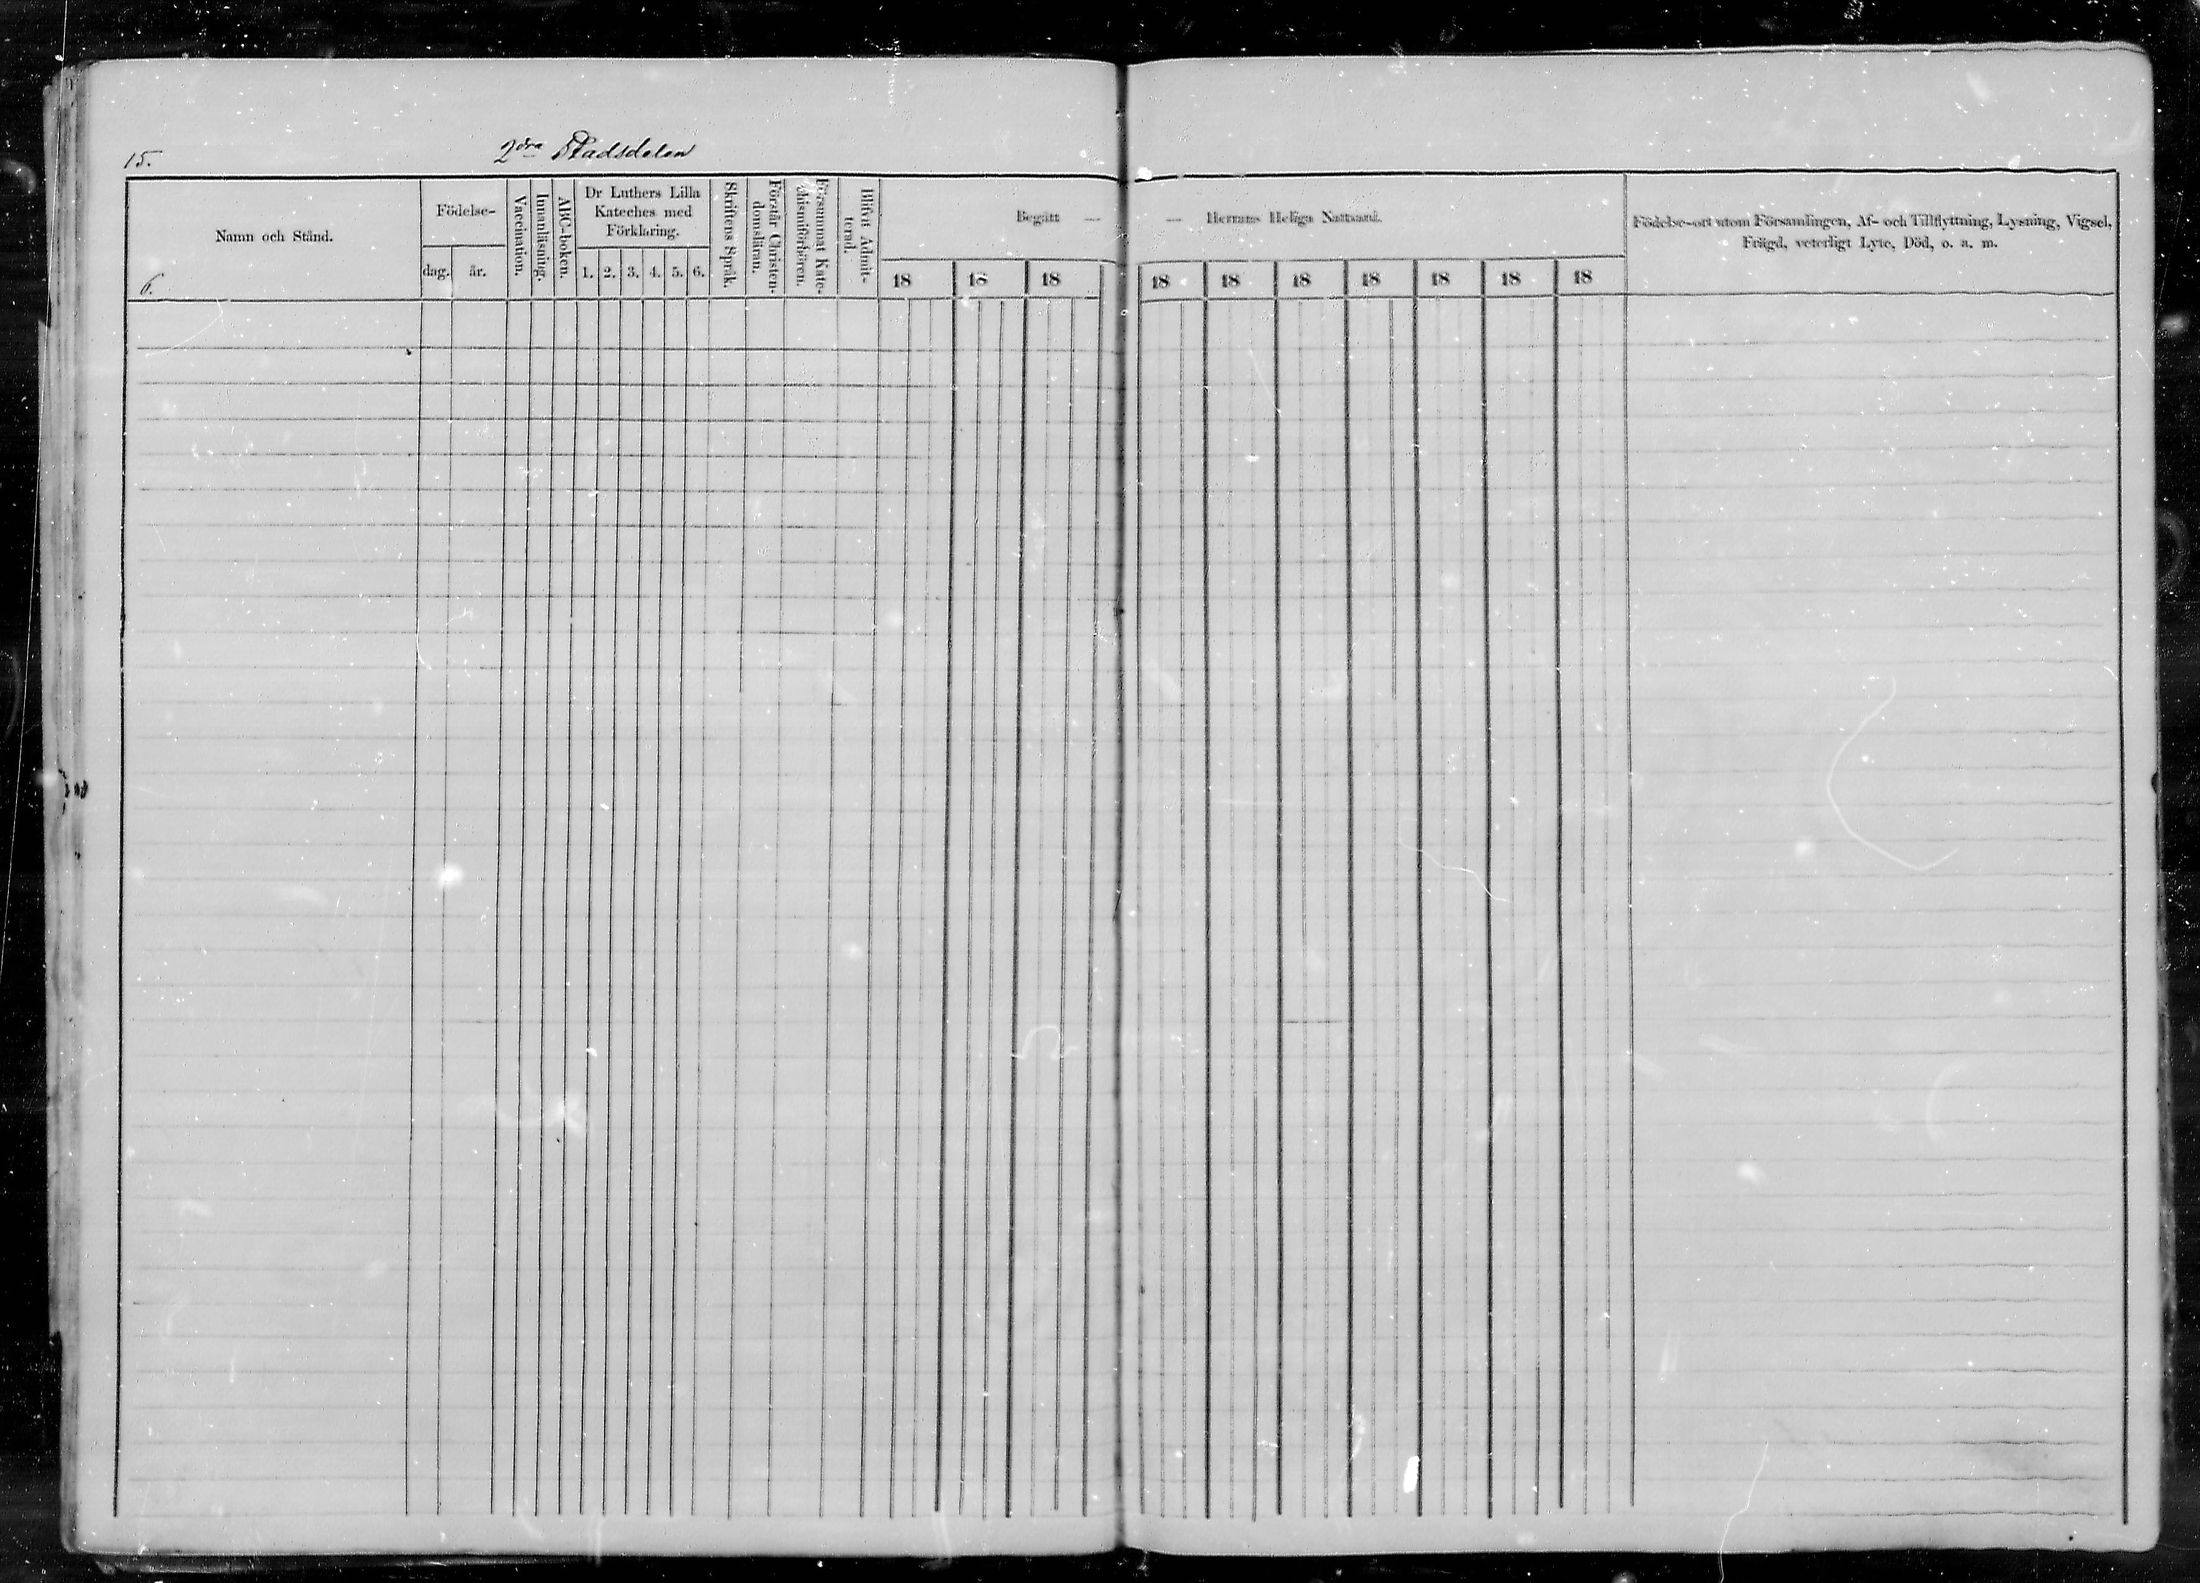 15.
2dra Stadsdelen
Namn och Stånd.
6.
Födelse-
dag.
år.
Vaccination.
Innanläsning.
ABC-boken.
Dr Luthers Lilla
Kateches med
Förklaring.
1. 2. 3. 4. 5. 6.
Skriftens Språk.
Förstår Christen-
domsläran.
Försummat Kate-
chismiförhören.
Blifvit Admit-
terad.
Begått —
— Herrans Heliga Nattvard.
18 18 18 18 18 18 18 18 18 18
Födelse-ort utom Församlingen, Af- och Tillflyttning, Lysning, Vigsel,
Frägd, veterligt Lyte, Död, o. a. m.